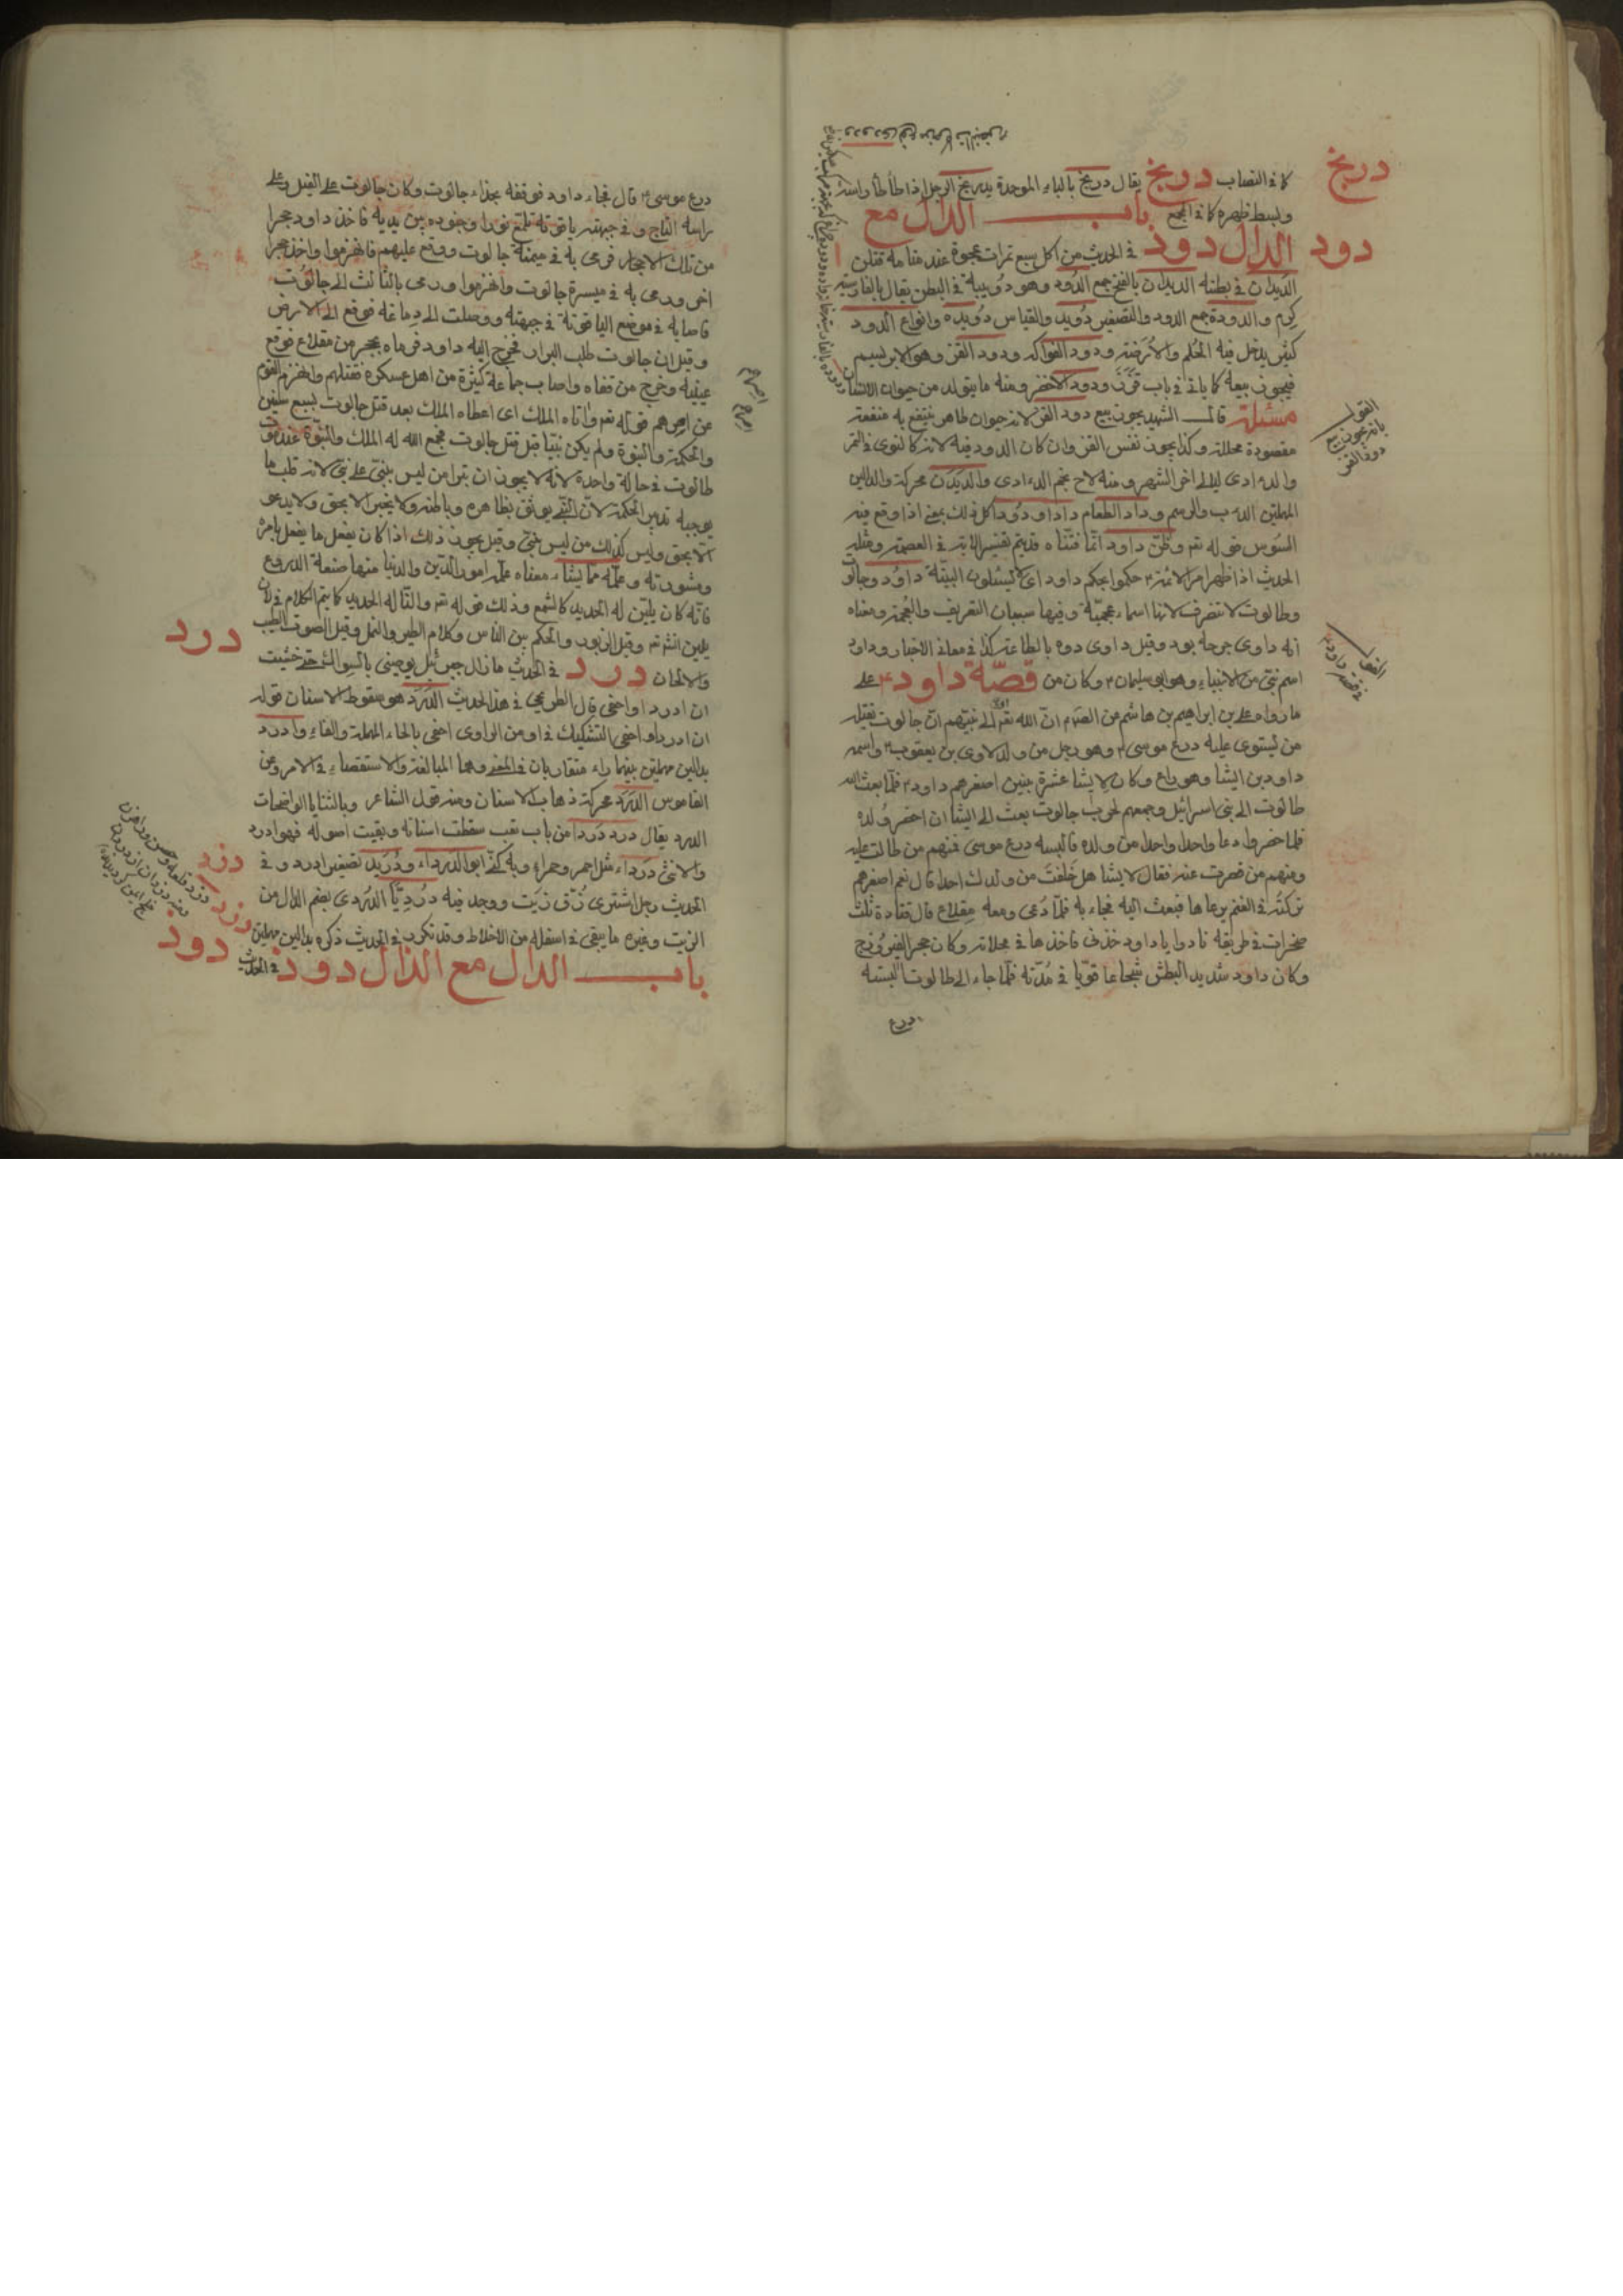 دربخ
كما في النصاب دربخ يقال دربخ بالباء الموحدة يدربخ الرجل اذا طأطأ راسه
وبسط ظهره كما في المجمع باب الدال مع
دود الدال دود في الحديث من اكل سبع تمرات عجوة عند منامه قتلن
الديدان في بطنه الديدان بالفتح جمع الدود وهو دويبة في البطن يقال بالفارسية
كرم والدودة جمع الدود والتصغير دويد والقياس دويده وانواع الدود
كثير يدخل فيه الحلم والارضة ودود الفواكه ودود القز وهو الابريسم
فيجوز بيعه كما ياتي في باب قزز ودود الاخضر ومنه ما يتولد من حيوان الانسان
مسئلة قال الشهيد يجوز بيع دود القز لانه حيوان طاهر ينتفع به منفعة
مقصودة محللة وكذا يجوز نفس القز وان كان الدود فيه لانه كالنوى في التمر
والدءادى ليالي اخر الشهر ومنه لاح نجم الدءادى والديدن محركة والدالين
المهملتين الدءب والرسم وداد الطعام داد اودود كل ذلك بمعنى اذا وقع فيه
السوس قوله تع وظن داود انما فتناه قديتم تفسير الاية في العصمة ومثله
الحديث اذا ظهر امر الائمة حكموا بحكم داود اى لا يسئلون البينة داود وجالوت
وطالوت لا تنصرف لانها اسماء عجمية وفيها سببان التعريف والعجمة ومعناه
انه داوى جرحه بود وقيل داوى دوه بالطاعة كذا في معاني الاخبار وداود
اسم نبي من الانبياء وهو ابو سليمان وكان من قصة داود على
ما رواه علي بن ابراهيم بن هاشم من الصم ان الله تع اوحى الى نبيهم ان جالوت يقتله
من يستوى عليه درع موسى وهو رجل من ولد لاوى بن يعقوب واسمه
داود بن ايشا وهو راع وكان لايشا عشرة بنين اصغرهم داود فلما بعث الله
طالوت الى بني اسرائيل وجمعهم لحرب جالوت بعث الى ايشا ان احضر ولده
فلما حضروا دعا واحدا واحدا من ولده فالبسه درع موسى فمنهم من طالت عليه
ومنهم من قصرت عنه فقال لايشا هل خلفت من ولدك احدا قال نعم اصغرهم
تركته في الغنم يرعاها فبعث اليه فجاء به فلما دعى ومعه مقلاع قال فنادة ثلث
صخرات في طريقه نادوا يا داود خذنا فاخذها في مخلاته وكان حجر الفيروزج
وكان داود شديد البطش شجاعا قويا في بدنه فلما جاء الى طالوت البسه
درع
القول
بانه يجوز بيع
دود القز
القول
في قصة داود
درع موسى قال فجاء داود فوقفه بحذاء جالوت وكان جالوت على الفيل وعلى
راسه التاج وفي جبهته ياقوتة تلمع نورا وجنوده بين يديه فاخذ داود حجرا
من تلك الاحجار فرمى به في ميمنة جالوت ووقع عليهم فانهزموا واخذ حجرا
اخر ورمى به في ميسرة جالوت وانهزموا ورمى بالثالث الى جالوت
فاصابه في موضع الياقوتة في جبهته ووصلت الى دماغه فوقع الى الارض
وقيل ان جالوت طلب البراز فخرج اليه داود فرماه بحجر من مقلاع فوقع
عينيه وخرج من قفاه واصاب جماعة كثيرة من اهل عسكره فقتلهم وانهزم القوم
عن اخرهم قوله تع واتاه الملك اى اعطاه الملك بعد قتل جالوت بسبع سنين
والحكمة والنبوة ولم يكن نبيا قبل قتل جالوت فجمع الله له الملك والنبوة عند موت
طالوت في حالة واحدة لانه لا يجوز ان يتراس من ليس بنبي على نبي لانه قلب ما
يوجبه تدبير الحكمة لان النبي يوثق بظاهره وباطنه ولا يخبر الا بحق ولا يدعو
الا بحق وليس كذلك من ليس بنبي وقيل يجوز ذلك اذا كان يفعل ما يفعل بامره
ومشورته وعلمه مما يشاء معناه علمه امور الدين والدنيا منها صنعة الدروع
فانه كان يلين له الحديد كالشمع وذلك قوله تع والنا له الحديد كما يتم الكلام في لان
يلين انش تع وقيل الزبور والحكم بين الناس وكلام الطير والنمل وقيل الصوت الطيب
والالحان درد في الحديث ما زال جبرئيل يوصيني بالسواك حتى خشيت
درد
ان ادرد او احفى قال الطريحي في هذا الحديث الدرد هو سقوط الاسنان قوله
ان ادرد او احفى التشكيك في او من الراوى احفى بالحاء المهملة والفاء وادرد
بدالين مهملتين بينهما راء متقاربان في المعنى وهما المبالغة والاستقصاء في الامر وعن
القاموس الدرد محركة ذهاب الاسنان ومنه قول الشاعر وبالثنايا الواضحات
الدرد يقال درد دردا من باب تعب سقطت اسنانه وبقيت اصوله فهو ادرد
والانثى درداء مثل احمر وحمراء وبه كنى ابو الدرداء ودريد تصغير ادرد وفي
الحديث رجل اشترى زق زيت ووجد فيه درديا الدردى بضم الدال من
الزيت وغيره ما يبقى في اسفله من الاخلاط وقد تكرر في الحديث ذكره بدالين مهملتين
باب الدال مع الذال دوذ في الحديث
دزد
دزد
دوذ